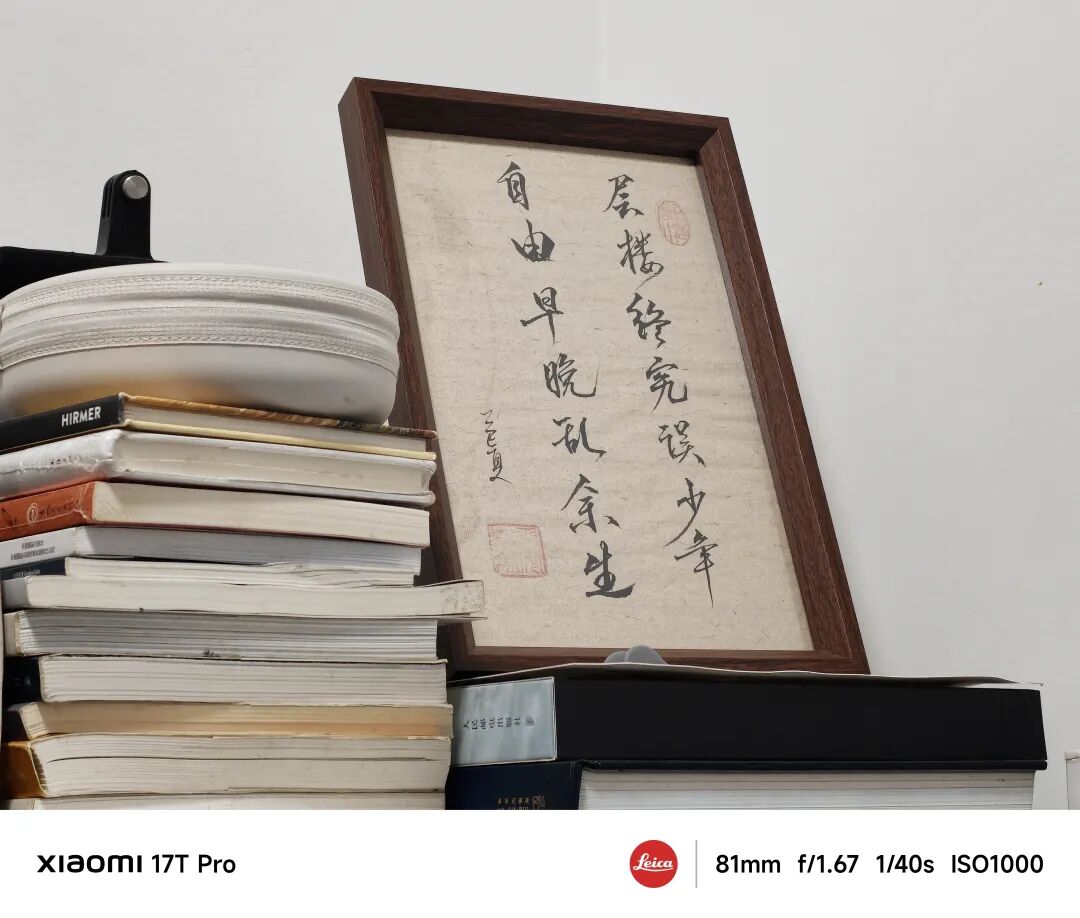 层楼终究误少年
自由早晚乱余生
HIRMER
人民邮电出版社
xiaomi 17T Pro
Leica
81mm f/1.67 1/40s ISO1000